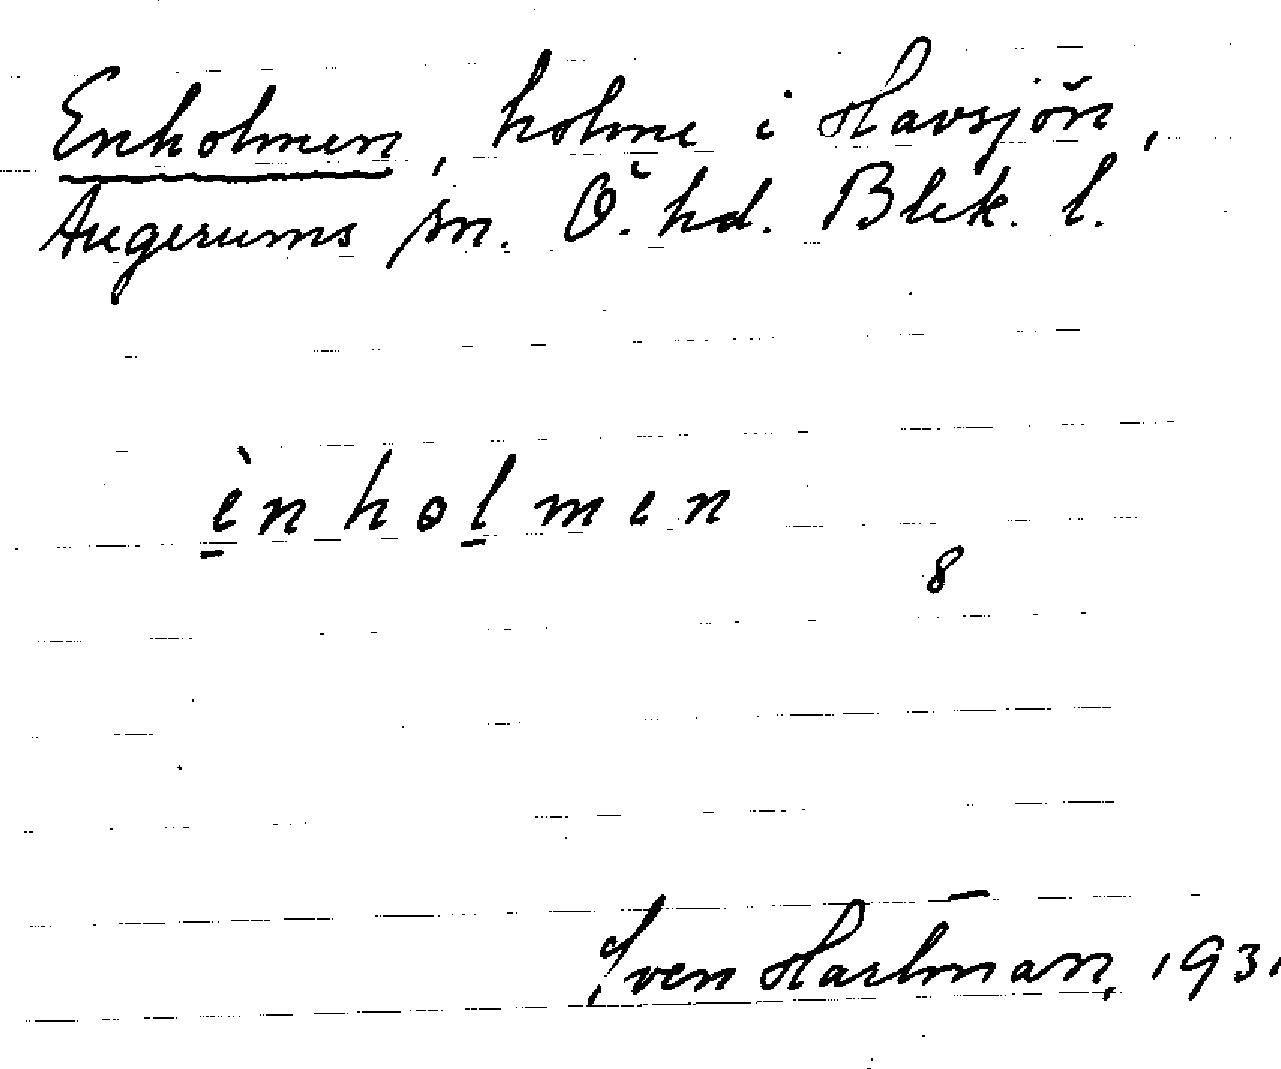 Enholmen, holme i Havsjön,
Augerums sn. Ö. hd. Blek. l.
ènholmen
8
Sven Hartman, 1931